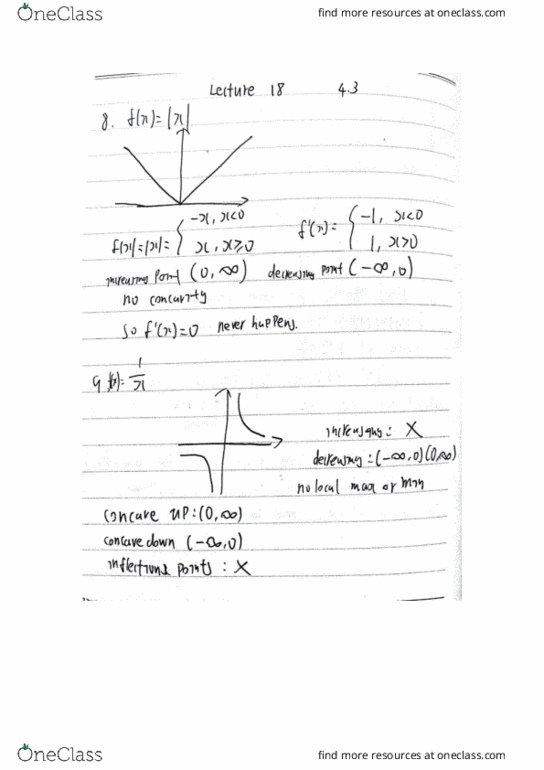 OneClass
find more resources at oneclass.com
Lecture 18 4.3
8. f(x)=|x|
f(x)=|x|= { -x, x<0
x, x≥0
f'(x)= { -1, x<0
1, x>0
increasing point (0, ∞) decreasing point (-∞, 0)
no concavity
So f'(x)=0 never happens.
9 f(x)= 1/x
increasing: X
decreasing: (-∞, 0)(0, ∞)
no local max or min
concave up: (0, ∞)
concave down (-∞, 0)
inflections points : X
OneClass
find more resources at oneclass.com